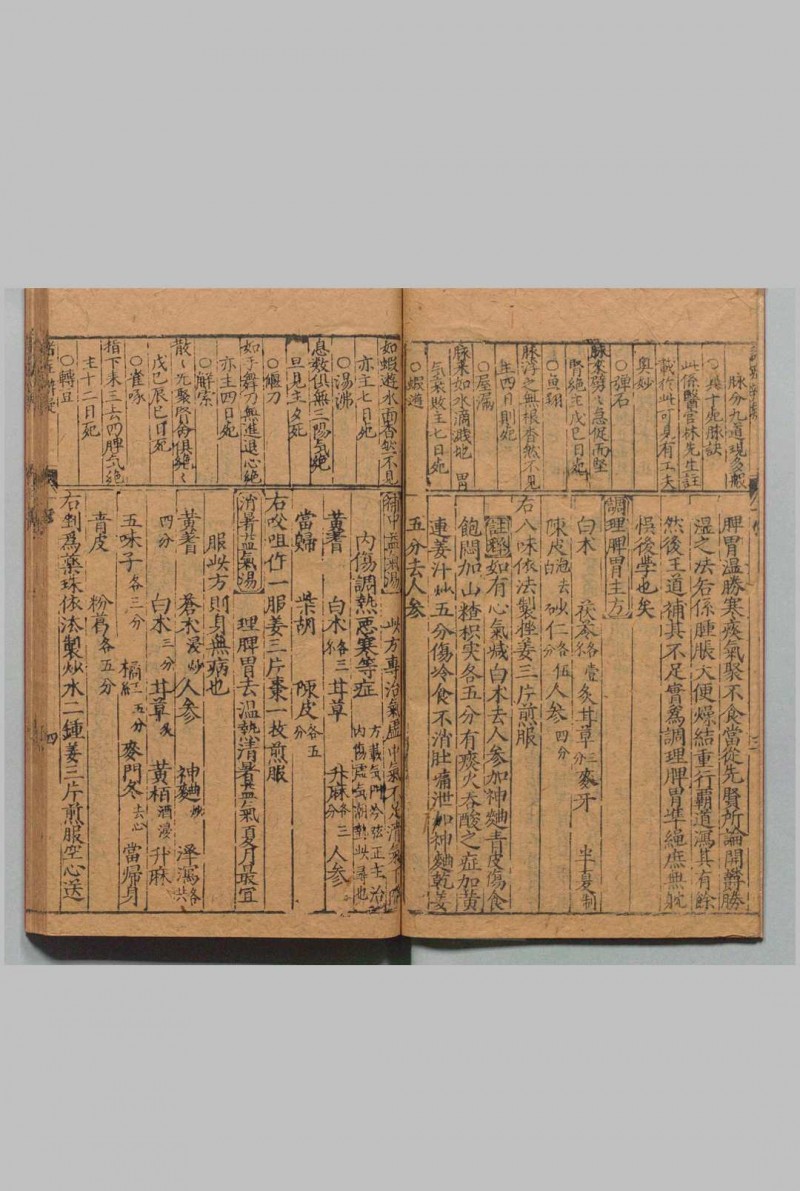 脉分九道現多般
○幾十死脉訣
此係醫官林先生註
載於此可見有工夫
奥妙
○彈石
脉来劈〻急促而堅
腎絕主戊巳日死
○魚翔
脉浮之無根杳然不見
主四日則死
○屋漏
脉来如水滴濺地 胃
气衰敗主七日死
○蝦遊
脾胃温勝寒痰氣聚不食當從先賢所論開鬱勝
濕之法若係腫脹大便燥結重行覇道瀉其有餘
然後王道補其不足實為調理脾胃準䋲庶無躭
悮後学也矣
調理脾胃主方
白术 茯苓各壹 炙甘草三分 麥牙 半夏制
陳皮泡去白 砂仁各伍分 人參四分
右八味依法製挫姜三片煎服
註釋如有心氣喊白术去人參加神麯青皮傷食
飽悶加山楂枳実各五分有痰火吞酸之症加黄
連姜汁炒五分傷冷食不消肚痛泄加神麯乾姜
五分去人參
如蝦遊水面杳然不見
亦主七日死
○湯沸
息数俱無三陽气絕
旦見主夕死
○偃刀
如手舞刀無進退心絕
亦主四日死
○解索
散〻先聚腎命俱絕〻
戊巳辰巳日死
○雀啄
指下来三去四脾气絕
主十二日死
○轉豆
補中益氣湯 此方專治氣虛中氣不足清氣下陷
内傷調熱悪寒等症 方載气門吟弦正主治内傷虛气潮熱此尋也
黄蓍 白术各三 甘草 升麻各三分 人參
當歸 柴胡 陳皮各五分
右咬咀作一服姜三片棗一枚煎服
消暑益氣湯 理脾胃去温熱清暑益氣夏月最宜
服此方則身無病也
黄蓍 蒼术浸炒 人參 神麯炒 澤瀉各共
四分 白术三分 甘草炙 黄栢酒浸 升麻
五味子各三分 橘紅五分 麥門冬去心 當帰身
青皮 粉葛各五分
右剉為藥珠依法製炒水二鍾姜三片煎服空心送
三
四